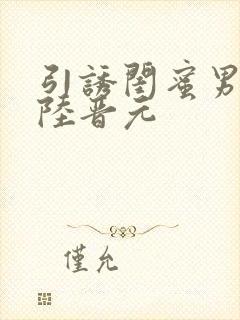 引誘閨蜜男
陸晋元
僅允